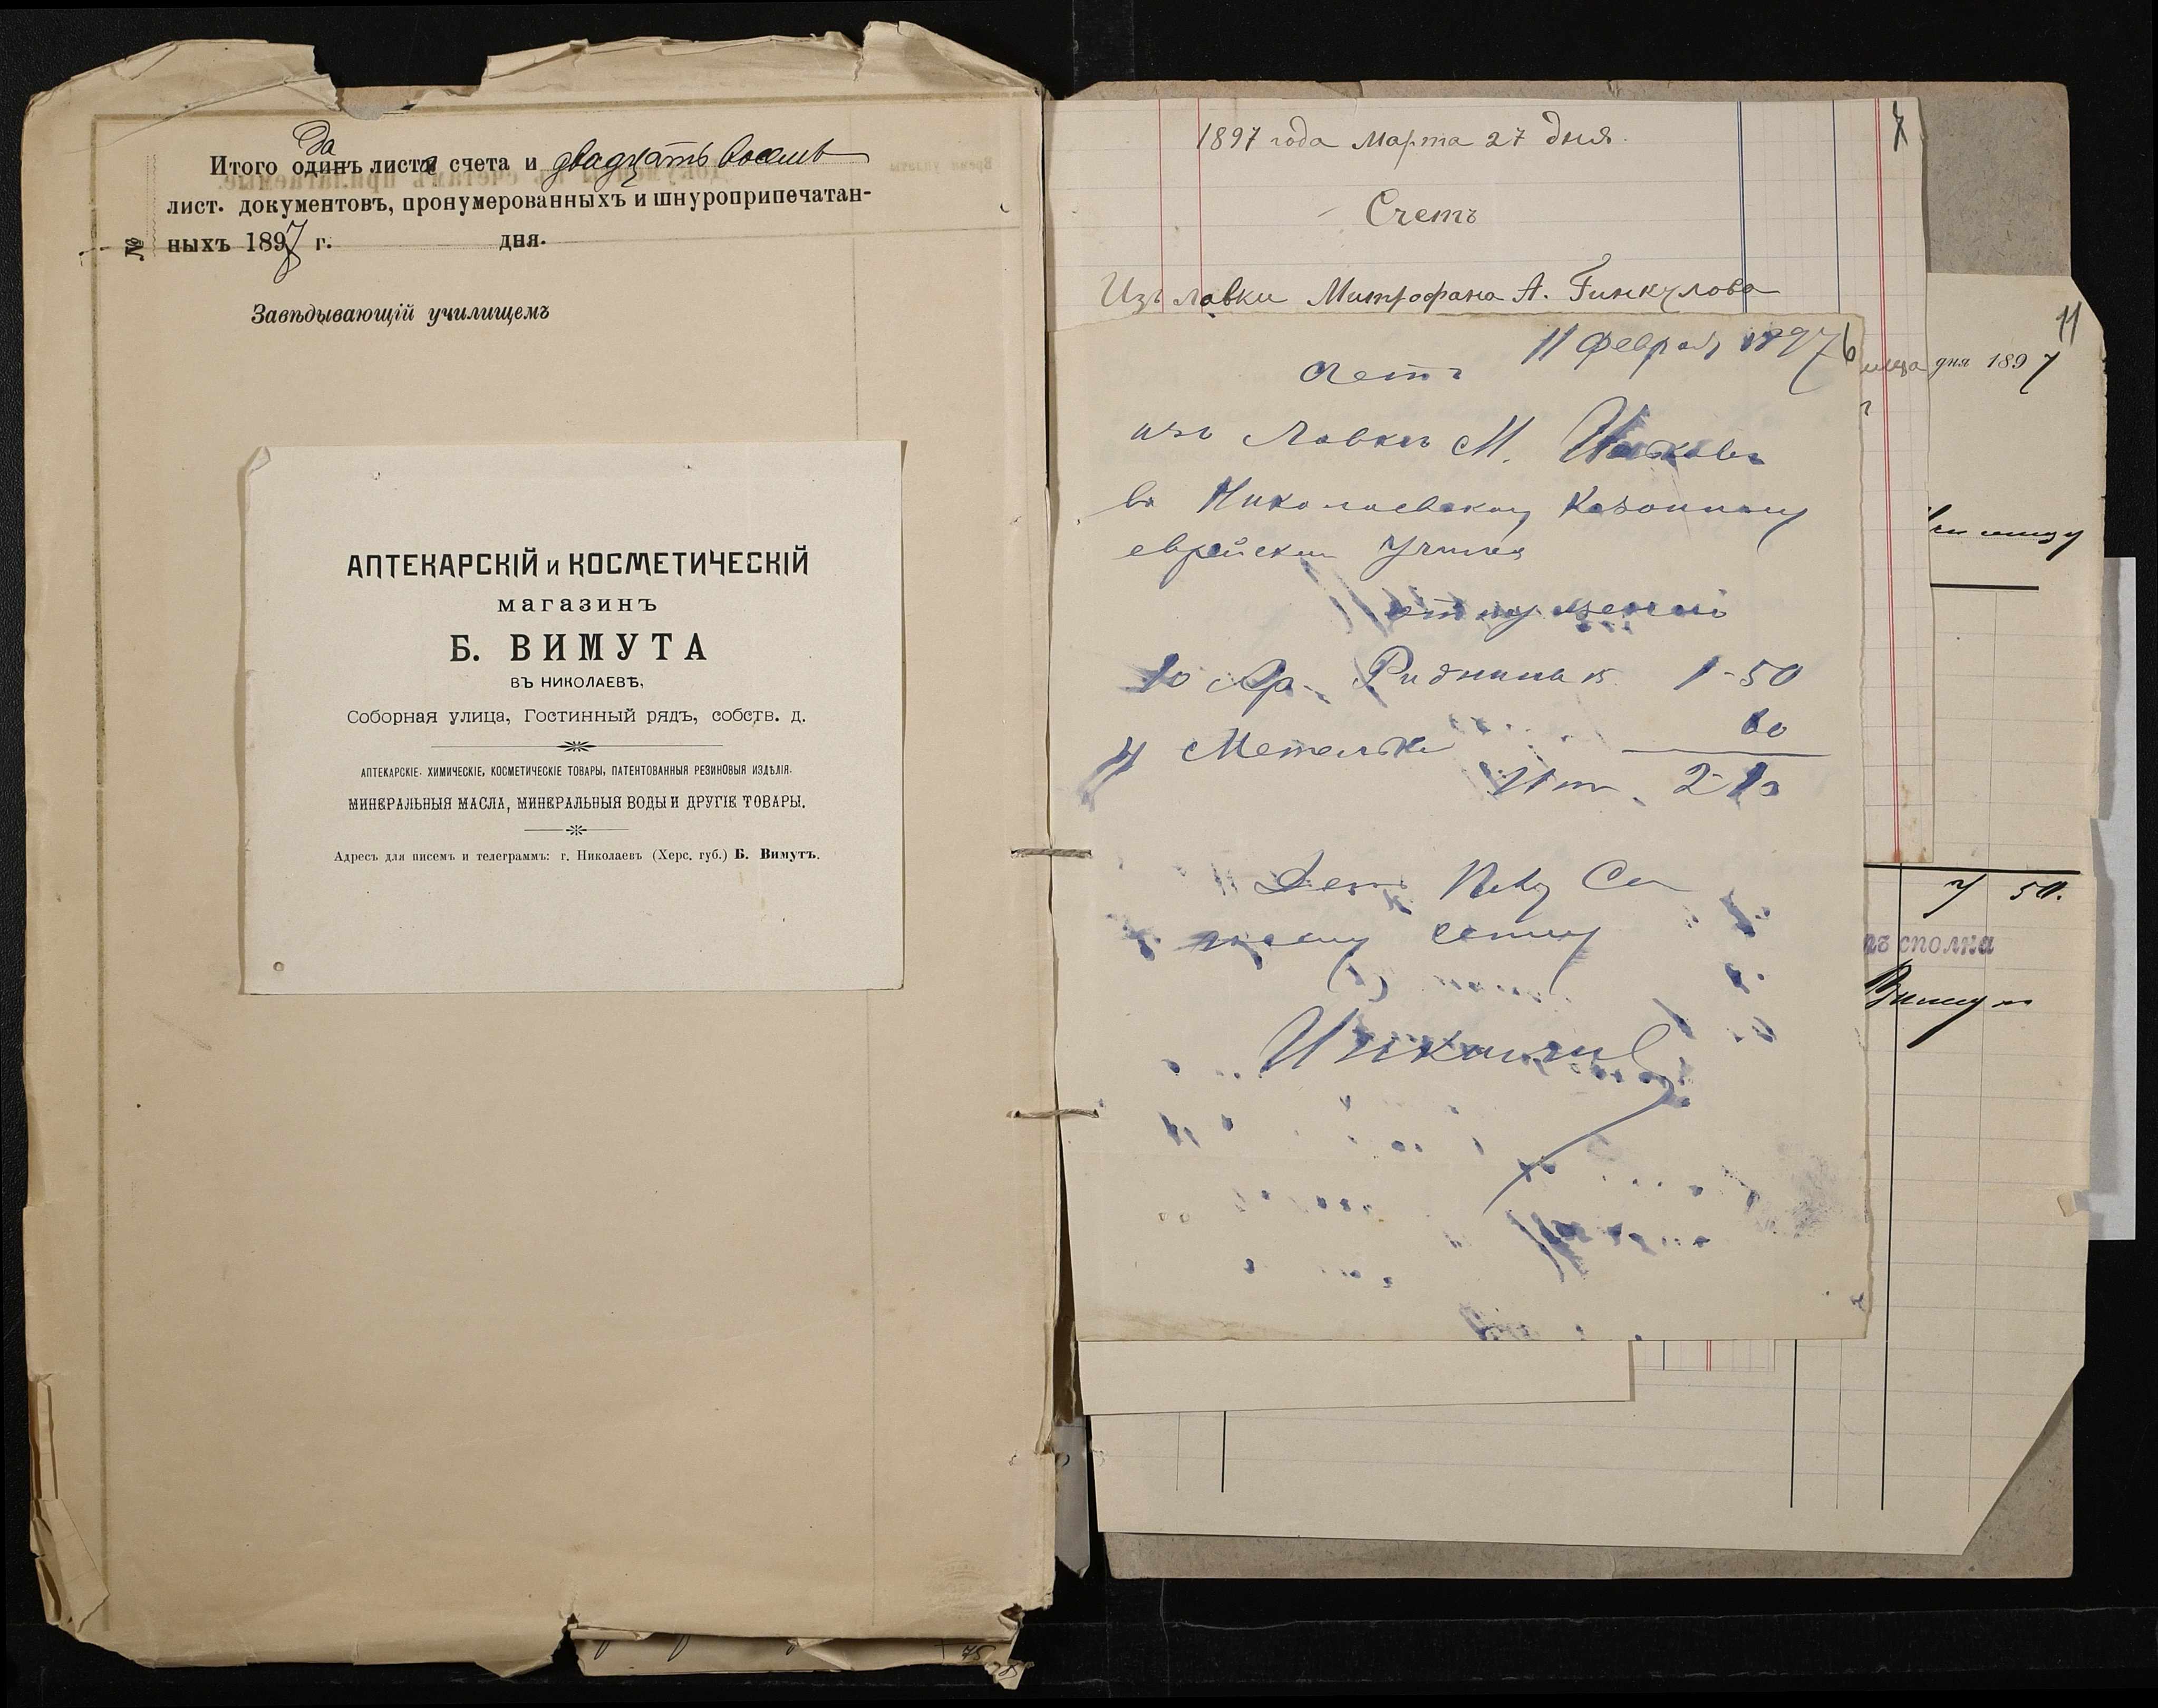 Итого два листа счета и двадцать восемь
лист. документовъ, пронумерованныхъ и шнуроприпечатан-
№ ныхъ 1897 г. дня.
Завѣдывающій училищемъ
АПТЕКАРСКІЙ и КОСМЕТИЧЕСКІЙ
магазинъ
Б. ВИМУТА
ВЪ НИКОЛАЕВѢ,
Соборная улица, Гостинный рядъ, собств. д.
АПТЕКАРСКІЕ. ХИМИЧЕСКІЕ, КОСМЕТИЧЕСКІЕ ТОВАРЫ, ПАТЕНТОВАННЫЯ РЕЗИНОВЫЯ ИЗДѢЛІЯ.
МИНЕРАЛЬНЫЯ МАСЛА, МИНЕРАЛЬНЫЯ ВОДЫ И ДРУГІЕ ТОВАРЫ.
Адресъ для писемъ и телеграммъ: г. Николаевъ (Херс. губ.) Б. Вимутъ.
7
1897 года Марта 27 дня.
Счетъ
Изъ лавки Митрофана А. Гинкулова
6
11 Февраля 1897
Счетъ
изъ Лавки М.
въ Николаевскому Казонному
еврейски
отпущений
10 Ар. 1-50
4 Метелки 60
Ит. 2-10
11
дня 1897
7 50.
сполна
Вимутъ